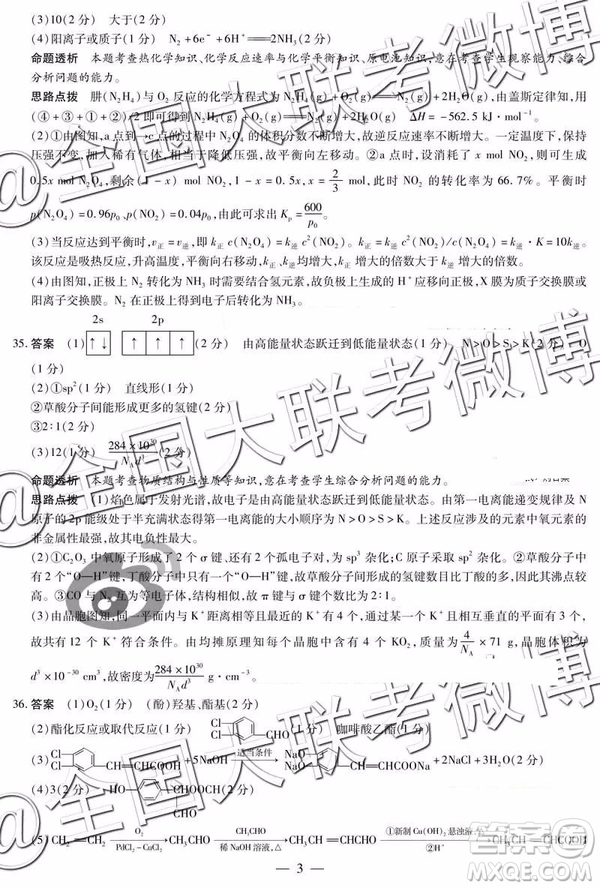 (3)10(2分) 大于(2分)
(4)阳离子或质子(1分) N₂+6e⁻+6H⁺══2NH₃(2分)
命题透析 本题考查热化学知识、化学反应速率与化学平衡知识、原电池知识,意在考查学生观察能力、综合
分析问题的能力。
思路点拨 肼(N₂H₄)与O₂反应的化学方程式为N₂H₄(g)+O₂(g)══N₂(g)+2H₂O(g),由盖斯定律知,用
ΔH=-562.5 kJ·mol⁻¹。
(2)①由图知,a点到c点的过程中N₂O₄的体积分数不断增大,故逆反应速率不断增大。一定温度下,保持
压强不变,再加入稀有气体,相当于降低压强,故平衡向左移动。②a点时,设消耗了x mol NO₂,则可生成
0.5x mol N₂O₄,剩余(1-x) mol NO₂,1-x=0.5x,x=2/3 mol,此时NO₂的转化率为66.7%。平衡时
p(N₂O₄)=0.96p₀,p(NO₂)=0.04p₀,由此可求出Kₚ=600/p₀
(3)当反应达到平衡时,v正=v逆,即k正 c(N₂O₄)=k逆 c²(NO₂),k正=k逆 c²(NO₂)/c(N₂O₄)=k逆·K=10k逆。
该反应是吸热反应,升高温度,平衡向右移动,k正增大的倍数大于k逆增大的倍数。
(4)由图知,正极上N₂转化为NH₃时需要结合氢元素,故负极上生成的H⁺应移向正极,X膜为质子交换膜或
阳离子交换膜。N₂在正极上得到电子后转化为NH₃。
2s 2p
35.答案 (1)[↑↓] [↑|↑|↑](2分) 由高能量状态跃迁到低能量状态(1分) N>O>S>K(2分) O
(1分)
(2)①sp²(1分) 直线形(1分)
②草酸分子间能形成更多的氢键(2分)
③2:1(2分)
(3)12(1分) 284×10³⁰/N_A d³(2分)
命题透析 本题考查物质结构与性质等知识,意在考查学生综合分析问题的能力。
思路点拨 (1)焰色属于发射光谱,故电子是由高能量状态跃迁到低能量状态。由第一电离能递变规律及N
原子的2p能级处于半充满状态可知第一电离能的大小顺序为N>O>S>K。上述元素的单质中氧元素的
非金属性最强,故其电负性最大。
中氧原子形成了2个σ键,还有2个孤电子对,为sp³杂化;②草酸分子中
有2个“O—H”键,丁酸分子中只有一个“O—H”键,故草酸分子间形成的氢键数目比丁酸分子多,因此其沸点较
高。
(3)由晶胞图知,同一平面内与K⁺距离相等且最近的K⁺共有4个,通过某一K⁺且相互垂直的平面有3个,
故共有12个K⁺符合条件。由均摊原理知每个晶胞中共有4个KO₂,质量为4/N_A×71 g,一个晶胞的体积为
d³×10⁻³⁰ cm³,故密度为284×10³⁰/N_A d³ g·cm⁻³。
36.答案 (1)O₂(1分) (酚)羟基、酯基(2分)
(2)酯化反应或取代反应(1分) Cl Cl CHO(2分) 咖啡酸乙酯(1分)
(3) Cl Cl CH═CHCOOH +5NaOH 适当条件→ NaO NaO CH═CHCOONa +2NaCl+3H₂O(2分)
(4)3(2分)
(5)CH₂═CH₂ O₂ PdCl₂-CuCl₂ → CH₃CHO CH₃CHO 稀NaOH溶液,△ → CH₃CH═CHCHO ①新制Cu(OH)₂悬浊液,△ ②H⁺ → CH₃CH═CHCOOH
— 3 —
@全国大联考微博
@全国大联考微博
@全国大联考微博
答案圈
MXQE.COM